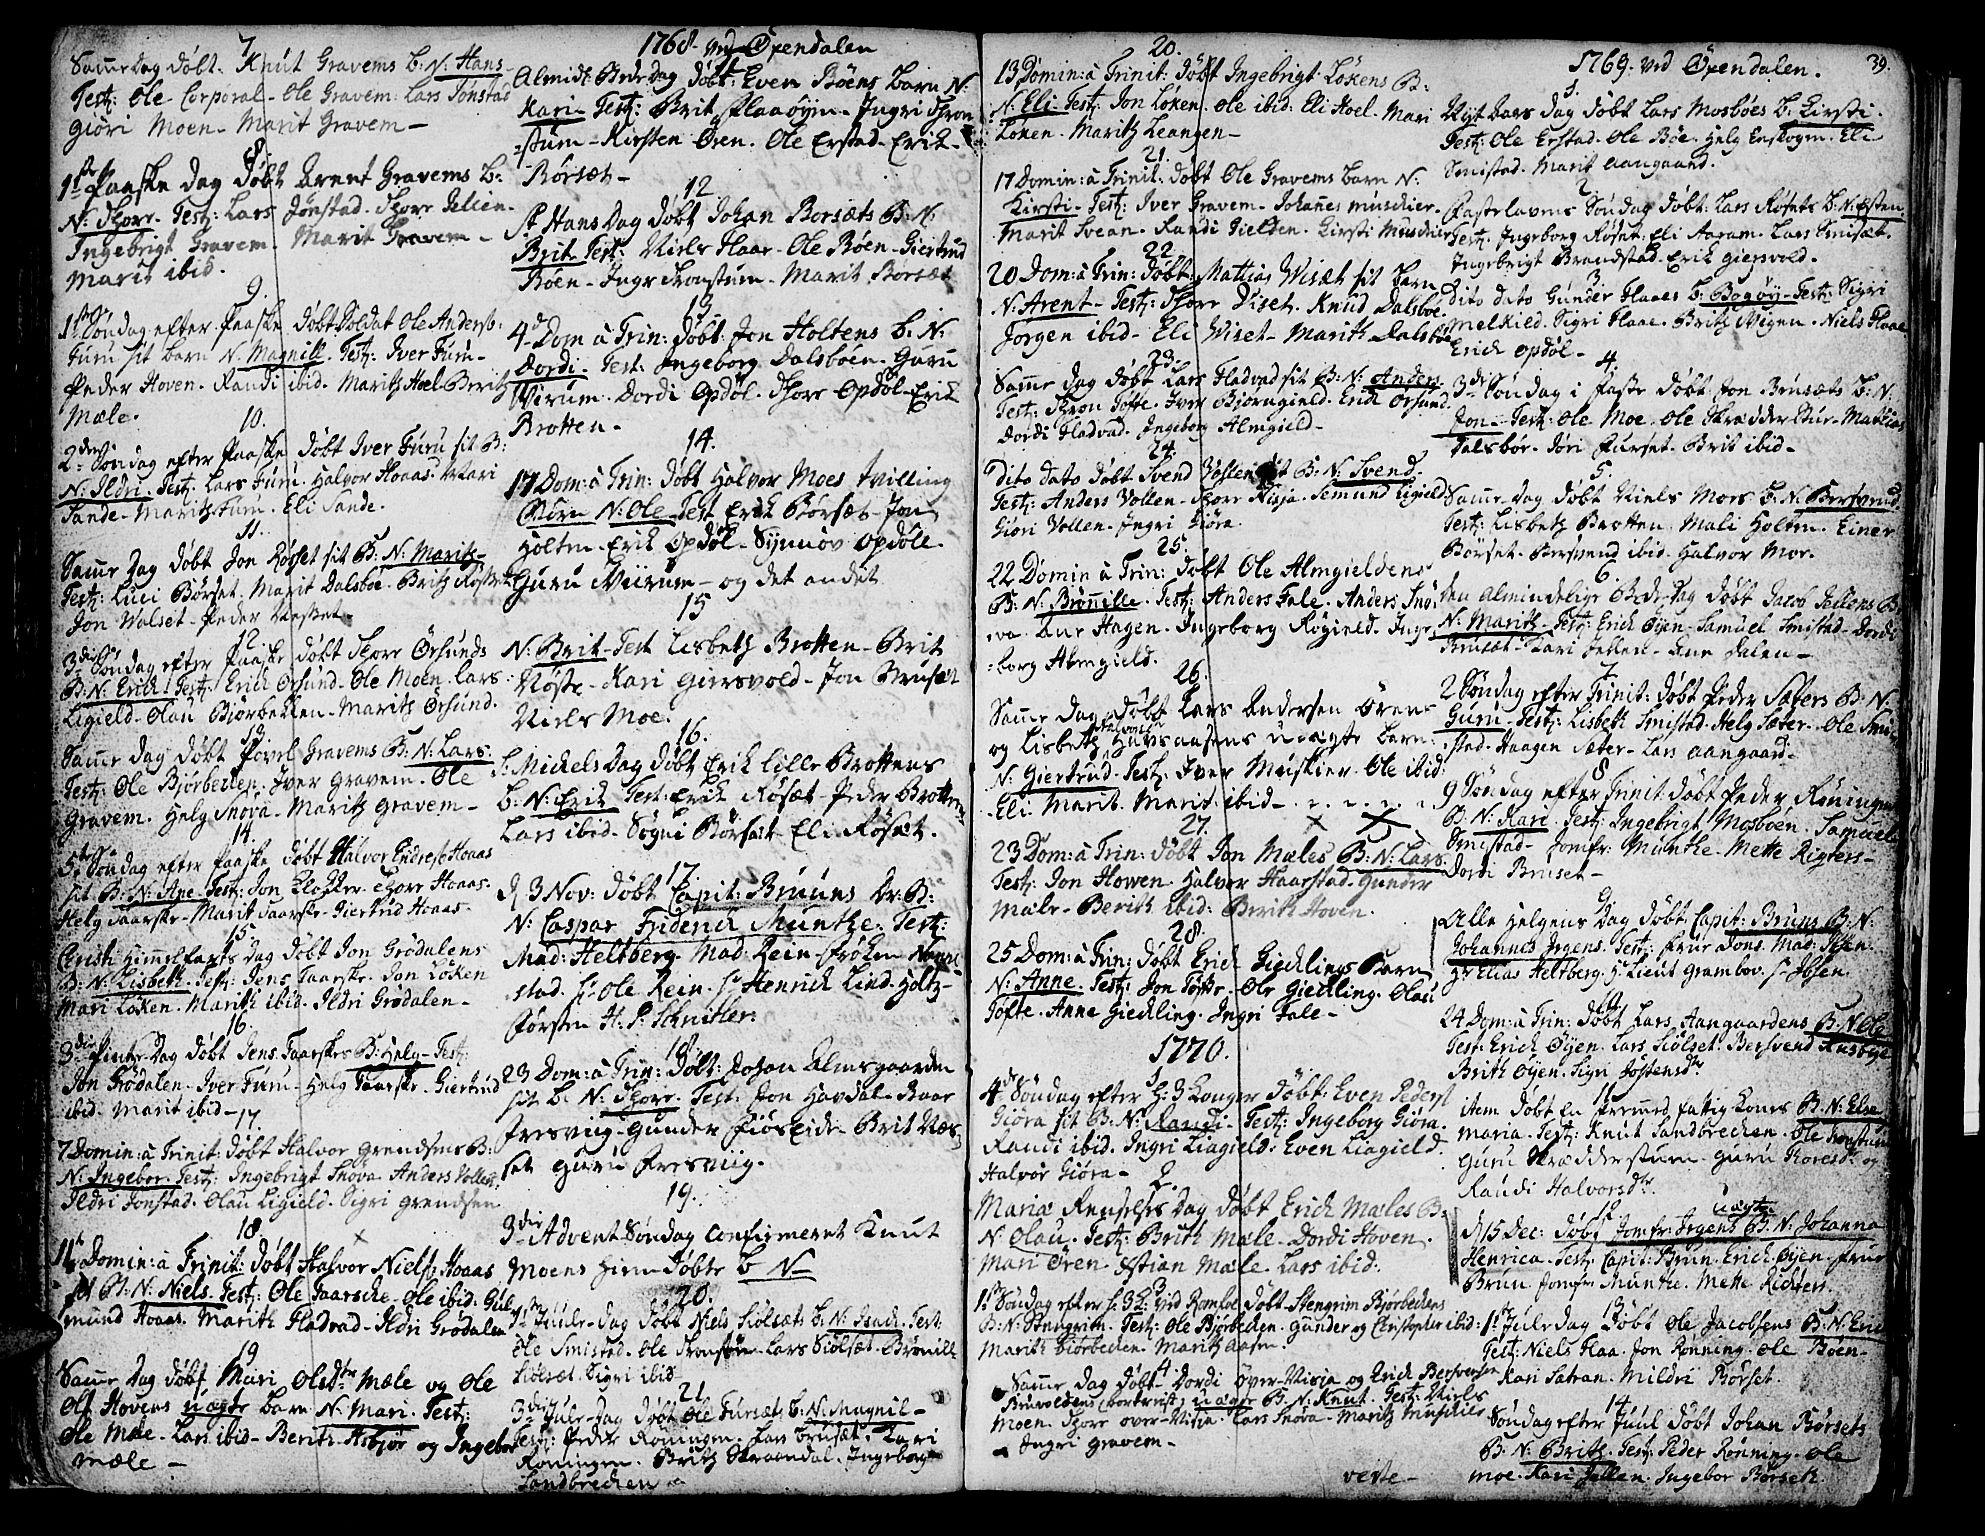 7
Samme Dag døbt. Knut Gravems B: N: Hans
Test: Ole Corporal - Ole Gravem. Lars Jonstad
Giöri Moen - Marit Gravem -
8
1ste Paaske Dag Döbt Arent Gravems B:
N: Thore. Test: Lars Jönstad. Thore Jelien.
Ingebrigt Gravem. Marit Gravem -
Marit ibid.
9
1ste Söndag efter Paaske Döbt Soldat Ole Anders:
Furu sit barn N. Magnill. Test: Iver Furu -
Peder Hoven. Randi ibid. Marith Hoel. Berith
Mæle.
10.
2den Söndag efter Paaske Döbt Iver Furu sit B:
N: Ildri. Test: Lars Furu. Halvor Hoaas. Mari
Sande - Marith Furu. Eli Sande.
11.
Samme Dag döbt Jon Röset sit B: N: Marith -
Test: Luci Börset. Marit Dalsboe. Brith Röset
Jon Walset - Peder
12
3die Söndag efter Paaske döbt Thore Örsunds
B: N: Erich. Test: Erich Örsund - Ole Moen. Lars
Ligield - Olau Biörbecken - Marith Örsund.
13.
Samme Dag Döbt Povel Gravems B: N: Lars.
Test: Ole Bjórbecken. Iver Gravem. Ole
Gravem. Helg Snova - Marith Gravem -
14.
5te Söndag efter Paaske Döbt Halvor Endres: Hoaas
sit B: N: Ane. Test: Jon Klocker. Thore Hoaas.
Helg Taarske - Marit Taarske - Giertrud Hoaas.
15
Christi Himmelfarts Dag döbt Jon Grödalens
B: N: Lisbeth. Test: Jens Taarske. Jon Löken
Mari Löken. Marith ibid. Ildri Grödalen -
16.
3die Pintse Dag Döbt Jens Taarskes B: Helg - Test:
Jon Grödalen - Iver Furu - Helg Taarske. Giertrud
ibid. Marit ibid -
17.
7 Domin: à Trinit: döbt Halvor Grendsens B:
N: Ingebor. Test: Ingebrigt Snova. Anders Vollen
Ildri Jonstad. Olau Ligield. Sigri Grendsen
18.
11te Domin: à Trinit: Döbt Halvor Niels: Hoaas
sit B: N: Niels. Test: Ole Taarske - Ole ibid. Gul
mund Hoaas. Marith Fladvad - Ildri Grödalen
19
Samme Dag döbt Mari Olsdtr Mæle og Ole
Ols: Hovens uægte barn N: Mari. Test:
Ole Mæle - Lars ibid - Berith Asbjör og Ingebor
Mæle -
1768. ved Öxendalen
11
Almidel: Bede Dag Döbt Even Böens Barn N:
Kari - Test: Brit Flaaöyen - Ingri Thron
stum - Kirsten Ören. Ole Erstad. Erik
Börset -
12
St Hans Dag Döbt Johan Borsæts B: N:
Brit Test: Niels Flaae - Ole Böen - Giertrud
Böen - Ingr Thronstum - Marit Borsæt
13.
4 Dom à Trin: Döbt Jon Holtens B: N:
Dordi. Test: Ingeborg Dalsboen. Guru
Wirum. Dordi Opdöl. Thore Opdöl - Erik
Brotten -
14.
17 Dom: à Trin: Döbt Halvor Moes Tvilling
Börn N: Ole Test Erik Börsæt - Jon
Holten. Erik Opdöl - Synnöv Opdöle.
Guru Wiirum - og det andet
15
N: Brit - Test Lisbeth Brotten - Brit
Nöste - Kari Giersvold - Jon Brusæt
Niels Moe.
16.
S: Michels Dag Döbt Erik Lille Brottens
B: N: Erik Test: Erik Rösæt - Peder Brotten
Lars ibid. Sögni Börsæt Eli Rösæt.
17.
d 3 Nov: döbt Capit: Bruuns Dr. B:
N: Caspar Friderich Munthe. Test:
Mad: Heltberg - Mad: Rein - fröken
stad. Hr. Ole Rein. Hr Henrich Lind. Holtz-
förster H. P. Schnitler.
18
23 Dom: à Trin: Döbt Johan Almsgaarden
sit B. N: Thore. Test: Jon Havdal - Roar
Fresviig - Gunder Fiöseide - Brit Næs
set Guru Fresviig.
19.
3die Advent Söndag confirmeret Knut
Moens hiemdöbte B N
20.
1ste Juule-Dag döbt Niels Siölsæts B. N: Isach. Test
Ole Smistad. Ole Thronstum. Lars Siölsæt. Brönill
Siölset Sigri ibid
21.
3die Jule-Dag Döbt Ole Fursæts B: N: Magnil -
Test: Peder Röningen - Lars Brusæt - Kari
Röningen. Brith Skraandal. Ingeborg
Sandbrecken -
20.
13 Domin: à Trinit: Döbt Ingebrigt Lökens B:
N: Eli Test: Jon Löken. Ole ibid: Eli Hoel. Mari
Löken. Marith Leangen -
21.
17 Domin: à Trinit: Döbt Ole Gravems barn N:
Kirsti - Test: Iver Gravem - Johannes Muschier.
Marit Svean. Randi Gielden. Kirsti Muschier
22.
20 Dom: à Trin: Döbt Mattias Wisæt sit barn
N: Arent - Test: Thore Diset. Knud Dalsboe.
Jörgen ibid - Eli Wiset - Marith Dalsboe
23.
Samme Dag döbt Lars Fladvad sit B: N: Anders
Test: Thron Töfte. Iver Bjórngield. Erich Örsund
Dordi Fladvad. Ingeborg Almgield -
24.
Dito dato döbt Svend Vollen sit B: N: Svend.
Test: Anders Vollen - Thore Nisja. Semund Ligield
Giöri Vollen - Ingri Giöra.
25.
22 Domin: à Trin: Döbt Ole Almgieldens
B: N: Brönille. Test: Anders Fale. Anders Sno-
va. Ane Hagen. Ingeborg Rögield. Inge-
borg Almgield.
26.
Samme Dag döbt Lars Andersen Örens
og Lisbeth Halvorsd: Huusaasens uægte barn.
N: Giertrud - Test: Iver Muskier. Ole ibid:
Eli. Marit. Marit. ibid -
27.
23 Dom: à Trin: döbt Jon Mæles B: N: Lars
Test: Jon Howen. Halvor Haarstad. Gunder
Mæle - Berith ibid: Berith Hoven.
28.
25 Dom: à Trin: Döbt Erich Giedlings Barn
N: Anne. Test: Jon Töfte. Ole Giedling. Olau
Töfte. Anne Giedling. Ingri Fale -
1770.
1
4de Söndag efter H: 3 Konger Döbt Even Peders:
Giöra sit B: N: Randi - Test: Ingeborg Giöra.
Randi ibid. Ingri Liagield. Even Liagield.
Halvor Giöra -
2.
Mariæ Renselses Dag Döbt Erich Mæles B:
N: Olau. Test: Brith Mæle - Dordi Hoven.
Mari Ören Estian Mæle. Lars ibid.
3
1ste Söndag efter H. 3 K: ved Romfoe döbt Stengrim Bjórbeckens
B: N: Stengrim. Test: Ole Bjórbecken. Gunder og Christopher ibid:
Marith Biörbecken. Marith Aasen.
4
Samme Dag döbt Dordi Över-Nisja og Erich Bersvensen
Bruvoldens (bortreist) uægte B. N: Knut. Test: Niels
Moen. Thore over-Nisja - Lars Snova - Marith Muschier
Ingri Gravem -
verte -
1769. ved Öxendalen.
39.
1.
Nyt Aars Dag Döbt Lars Mosboes B. Kirsti.
Test: Ole Erstad. Ole Böe. Helg Enskogen. Eli
Smistad. Marit Aangaard.
2
Fastelavens Söndag döbt. Lars Rösets B: N: Esten.
Test: Ingeborg Röset. Eli Aaram. Lars Smisæt.
Ingebrigt Brandstad. Erik Giersvold.
3
Dito dato Gunder Flaaes B: Bogöy - Test: Sigri
Melkild. Sigri Flaae. Brith Wigen. Niels Flaae
Erich Opdöl -
4
3die Söndag i Faste Döbt Jon Brusæts B: N:
Jon - Test: Ole Moe. Ole Skrædderstue - Mattias
Talsböe. Jöri Furset. Brit ibid -
5.
Samme Dag döbt Niels Moes B: N. Bersvend
Test: Lisbeth Brotten. Mali Holten. Einer
Börset. Bersvend ibid. Halvor Moe.
6
Den Almindelige Bede Dag döbt Jacob Jellens B
N: Marith. Test: Erich Öyen. Samuel Smistad - Dordi
Brusæt - Kari Jellen - Ane Dalen -
7.
2 Söndag efter Trinit: döbt Peder Sæters B: N:
Guru - Test: Lisbeth Smistad. Helg Sæter. Ole Smi-
stad. Haagen Sæter - Lars Aangaard -
8
9 Söndag efter Trinit: Döbt Peder Röningen
B: N: Kari. Test: Ingebrigt Mosboen. Samuel
Smistad - Jomfr: Munthe - Mette Rigters -
Dordi Bruset -
9.
Alle Helgens Dag döbt Capit: Bruns B: N:
Johannes Irgens. Test: frue Döns. Mad: Ibsen.
Hr Elias Heltberg. Hr Lieut Grambov. Hr Ibsen.
10.
24 Dom: à Trin: Döbt Lars Aangaardens B: N: Ole
Test: Erich Öyen. Lars Siölset. Bersvend Husbye
Brith Öyen. Sigri Jostensdtr
11
item döbt En fremmed fattig Kones B. N: Else
Maria. Test: Knut Sandbrecken. Ole Thronstum
Guru Skrædderstuen - Guru Toresdtr og
Randi Halvorsdtr.
12
d 15 Dec: Döbt Jomfr: Irgens uægte B: N: Johanna
Henrica. Test: Capit: Brun. Erich Öyen. Frue
Brun. Jomfr: Munthe. Mette Richters.
13
1ste Juledag Döbt Ole Jacobsens B: N: Eric
Test: Niels Flaa. Jon Rönning. Ole Böen -
Kari Satran. Mildri Börset.
14.
Söndag efter Juul Döbt Johan Börsets
B: N: Brith. Test: Peder Rönning. Ole
Moe. Kari Jellen. Ingebor Börseth.